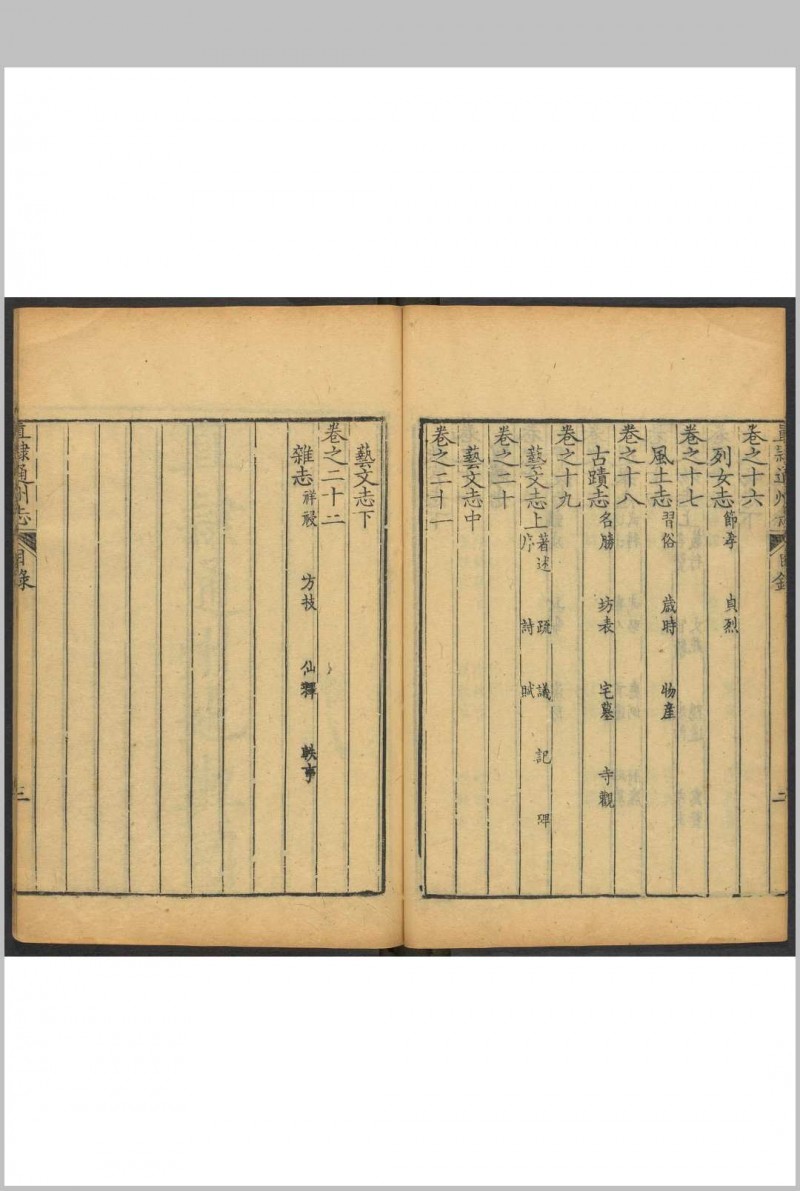 直隸通州志 目錄 二
卷之十六
列女志 節孝 貞烈
卷之十七
風土志 習俗 歲時 物產
卷之十八
古蹟志 名勝 坊表 宅墓 寺觀
卷之十九
藝文志上 著述 疏 議 記 碑 序 詩 賦
卷之二十
藝文志中
卷之二十一
藝文志下
卷之二十二
雜志 祥祲 方技 仙釋 軼事
直隸通州志 目錄 三